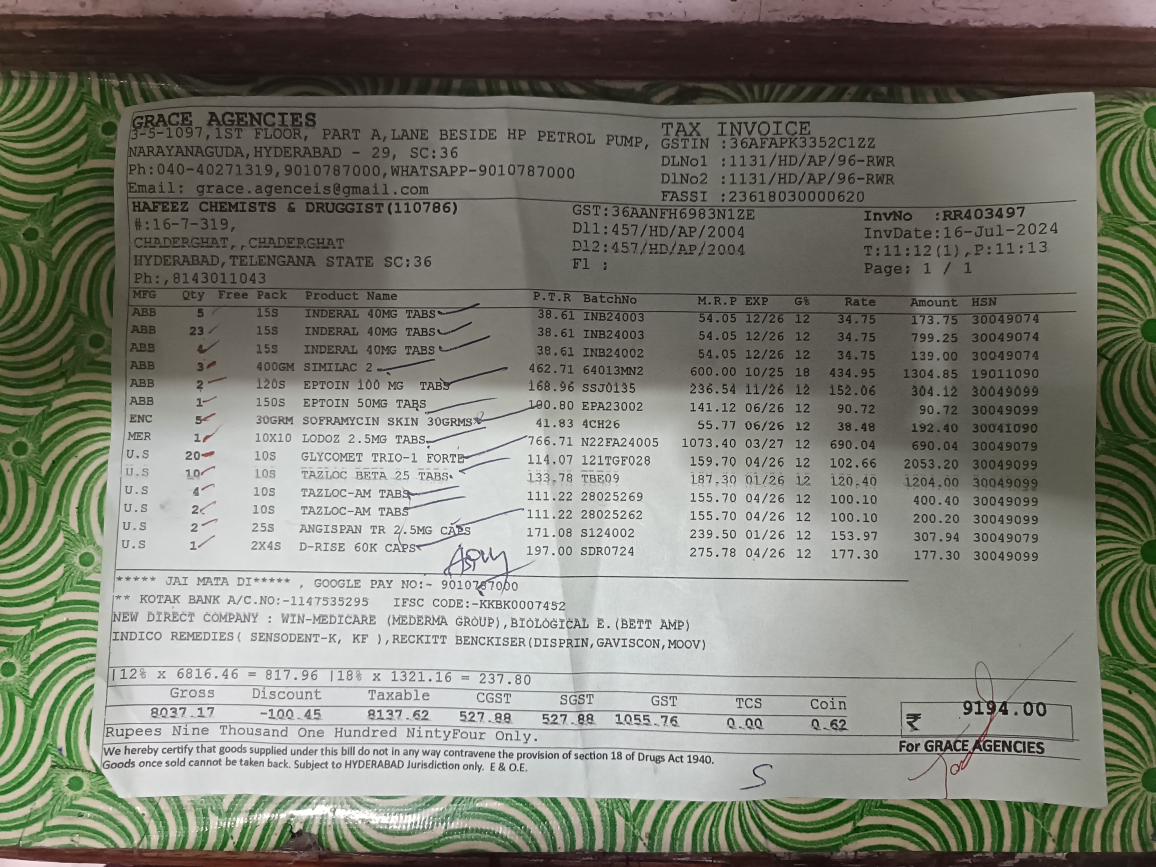 GRACE AGENCIES
3-5-1097,1ST FLOOR, PART A,LANE BESIDE HP PETROL PUMP,
NARAYANAGUDA,HYDERABAD - 29, SC:36
Ph:040-40271319,9010787000,WHATSAPP-9010787000
Email: grace.agenceis@gmail.com
TAX INVOICE
GSTIN :36AFAPK3352C1ZZ
DLNo1 :1131/HD/AP/96-RWR
DLNo2 :1131/HD/AP/96-RWR
FASSI :23618030000620
HAFEEZ CHEMISTS & DRUGGIST(110786)
#:16-7-319,
CHADERGHAT,,CHADERGHAT
HYDERABAD,TELENGANA STATE SC:36
Ph:,8143011043
GST:36AANFH6983N1ZE
Dl1:457/HD/AP/2004
Dl2:457/HD/AP/2004
Fl :
InvNo :RR403497
InvDate:16-Jul-2024
T:11:12(1),P:11:13
Page: 1 / 1
MFG Qty Free Pack Product Name P.T.R BatchNo M.R.P EXP G% Rate Amount HSN
ABB 5 15S INDERAL 40MG TABS 38.61 INB24003 54.05 12/26 12 34.75 173.75 30049074
ABB 23 15S INDERAL 40MG TABS 38.61 INB24003 54.05 12/26 12 34.75 799.25 30049074
ABB 4 15S INDERAL 40MG TABS 38.61 INB24002 54.05 12/26 12 34.75 139.00 30049074
ABB 3 400GM SIMILAC 2 462.71 64013MN2 600.00 10/25 18 434.95 1304.85 19011090
ABB 2 120S EPTOIN 100 MG TABS 168.96 SSJ0135 236.54 11/26 12 152.06 304.12 30049099
ABB 1 150S EPTOIN 50MG TABS 100.80 EPA23002 141.12 06/26 12 90.72 90.72 30049099
ENC 5 30GRM SOFRAMYCIN SKIN 30GRMS 41.83 4CH26 55.77 06/26 12 38.48 192.40 30041090
MER 1 10X10 LODOZ 2.5MG TABS 766.71 N22FA24005 1073.40 03/27 12 690.04 690.04 30049079
U.S 20 10S GLYCOMET TRIO-1 FORTE 114.07 121TGF028 159.70 04/26 12 102.66 2053.20 30049099
U.S 10 10S TAZLOC BETA 25 TABS 133.78 TBE09 187.30 01/26 12 120.40 1204.00 30049099
U.S 4 10S TAZLOC-AM TABS 111.22 28025269 155.70 04/26 12 100.10 400.40 30049099
U.S 2 10S TAZLOC-AM TABS 111.22 28025262 155.70 04/26 12 100.10 200.20 30049099
U.S 2 25S ANGISPAN TR 2.5MG CAPS 171.08 S124002 239.50 01/26 12 153.97 307.94 30049079
U.S 1 2X4S D-RISE 60K CAPS 197.00 SDR0724 275.78 04/26 12 177.30 177.30 30049099
***** JAI MATA DI***** , GOOGLE PAY NO:- 9010787000
** KOTAK BANK A/C.NO:-1147535295 IFSC CODE:-KKBK0007452
NEW DIRECT COMPANY : WIN-MEDICARE (MEDERMA GROUP),BIOLOGICAL E.(BETT AMP)
INDICO REMEDIES( SENSODENT-K, KF ),RECKITT BENCKISER(DISPRIN,GAVISCON,MOOV)
|12% x 6816.46 = 817.96 |18% x 1321.16 = 237.80
Gross Discount Taxable CGST SGST GST TCS Coin
8037.17 -100.45 8137.62 527.88 527.88 1055.76 0.00 0.62
₹ 9194.00
Rupees Nine Thousand One Hundred NintyFour Only.
For GRACE AGENCIES
We hereby certify that goods supplied under this bill do not in any way contravene the provision of section 18 of Drugs Act 1940.
Goods once sold cannot be taken back. Subject to HYDERABAD Jurisdiction only. E & O.E.
S